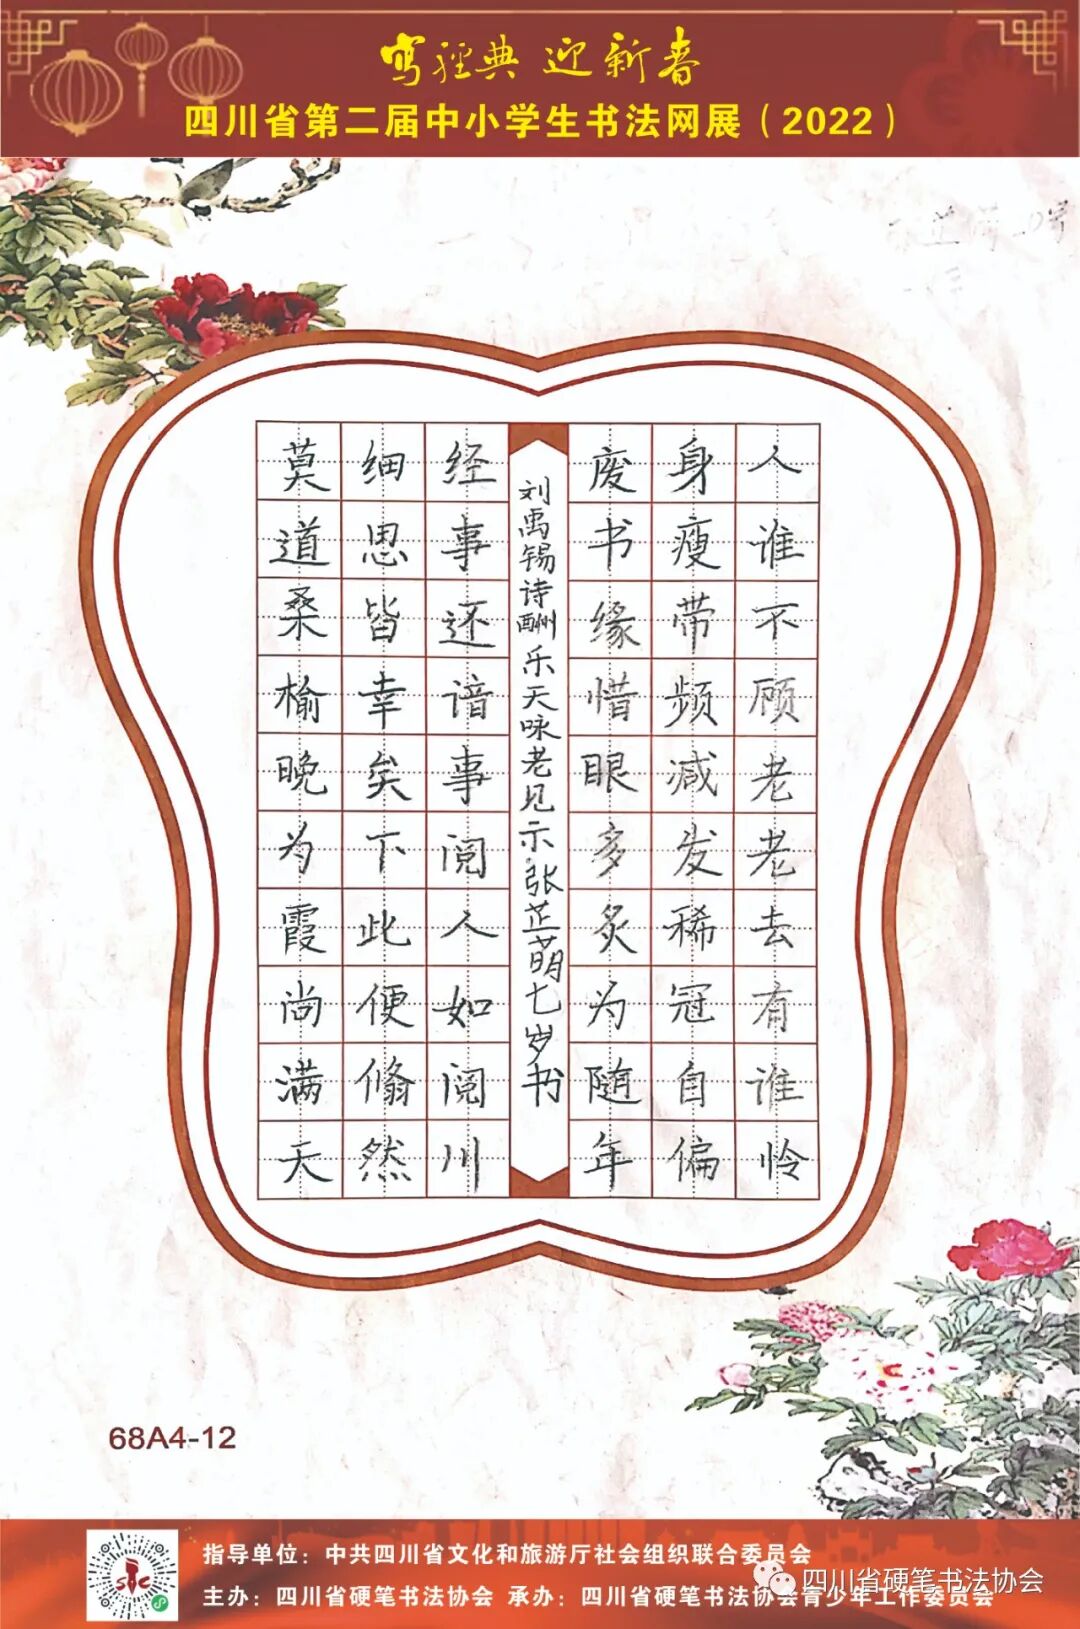 写经典 迎新春
四川省第二届中小学生书法网展（2022）
人谁不顾老老去有谁怜
身瘦带频减发稀冠自偏
废书缘惜眼多炙为随年
刘禹锡诗酬乐天咏老见示张芷萌七岁书
经事还谙事阅人如阅川
细思皆幸矣下此便翛然
莫道桑榆晚为霞尚满天
68A4-12
指导单位：中共四川省文化和旅游厅社会组织联合委员会
主办：四川省硬笔书法协会 承办：四川省硬笔书法协会青少年工作委员会
四川省硬笔书法协会